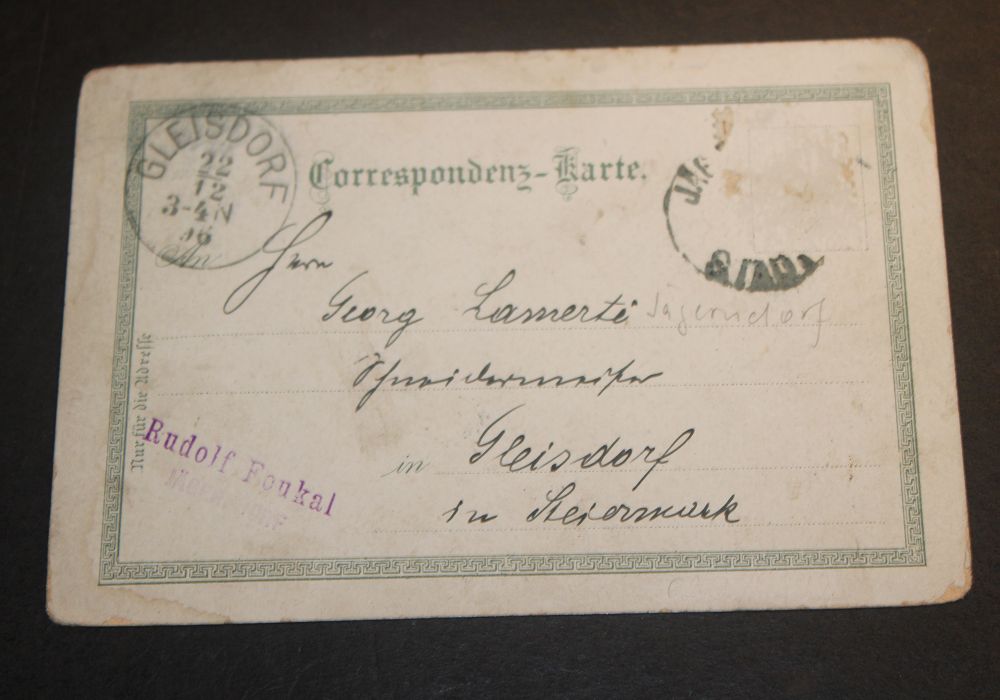 GLEISDORF
22
12
3-4N
Correspondenz-Karte.
An
Herrn
Georg Lamerti
Jägerndorf
Schneidermeister
in Gleisdorf
in Steiermark
Nur für die Adresse
Rudolf Foukal